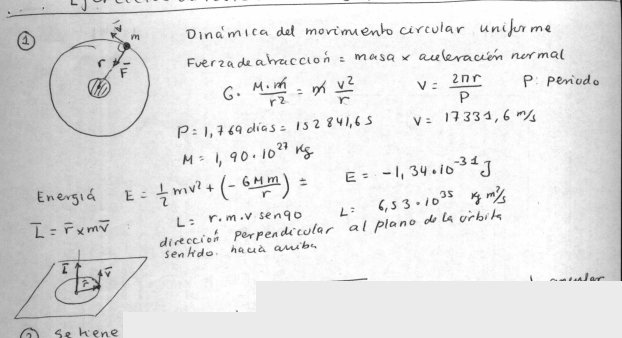 ①
Dinámica del movimiento circular uniforme
v m
r F
Fuerza de atracción = masa x aceleración normal
G. M.m/r² = m v²/r V = 2πr/P P: periodo
P = 1,769 días = 152841,6 s V = 17331,6 m/s
M = 1,90.10²⁷ Kg
Energía E = ½mv² + (-GMm/r) = E = -1,34.10⁻³¹ J
L = r x mv L = r.m.v sen90 L = 6,53.10³⁵ kg m²/s
dirección perpendicular al plano de la órbita
sentido. hacia arriba
L r v
② Se tiene